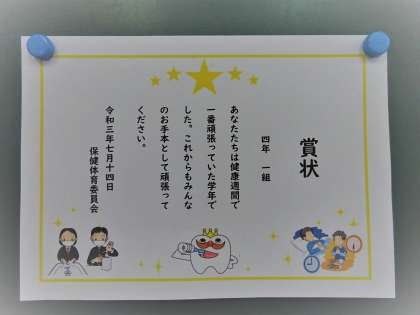 賞状
四年 一組
あなたたちは健康週間で
一番頑張っていた学年で
した。これからもみんな
のお手本として頑張って
ください。
令和三年七月十四日
保健体育委員会